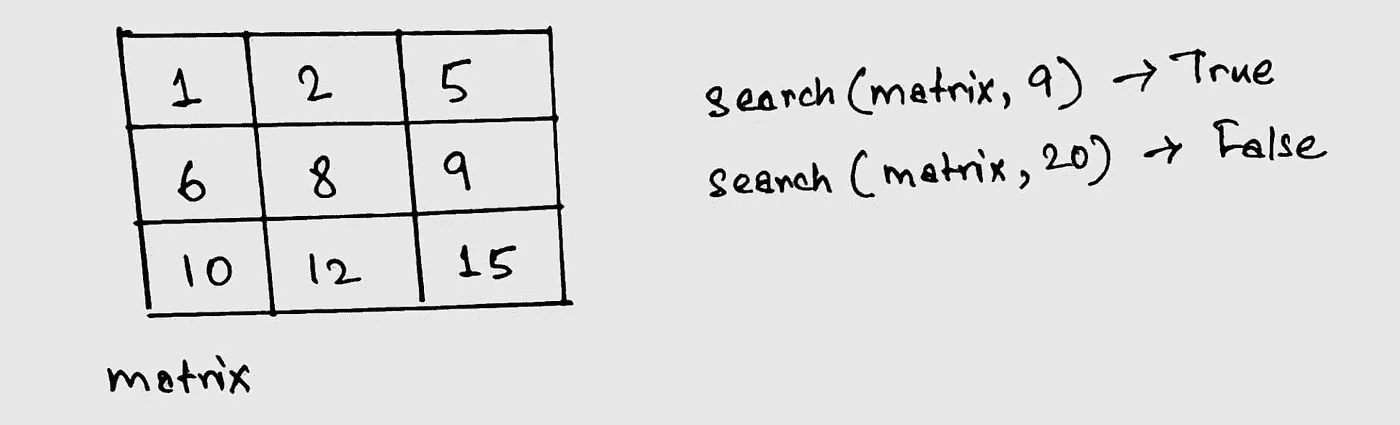 1 2 5
6 8 9
10 12 15
matrix
search (matrix, 9) → True
search (matrix, 20) → False